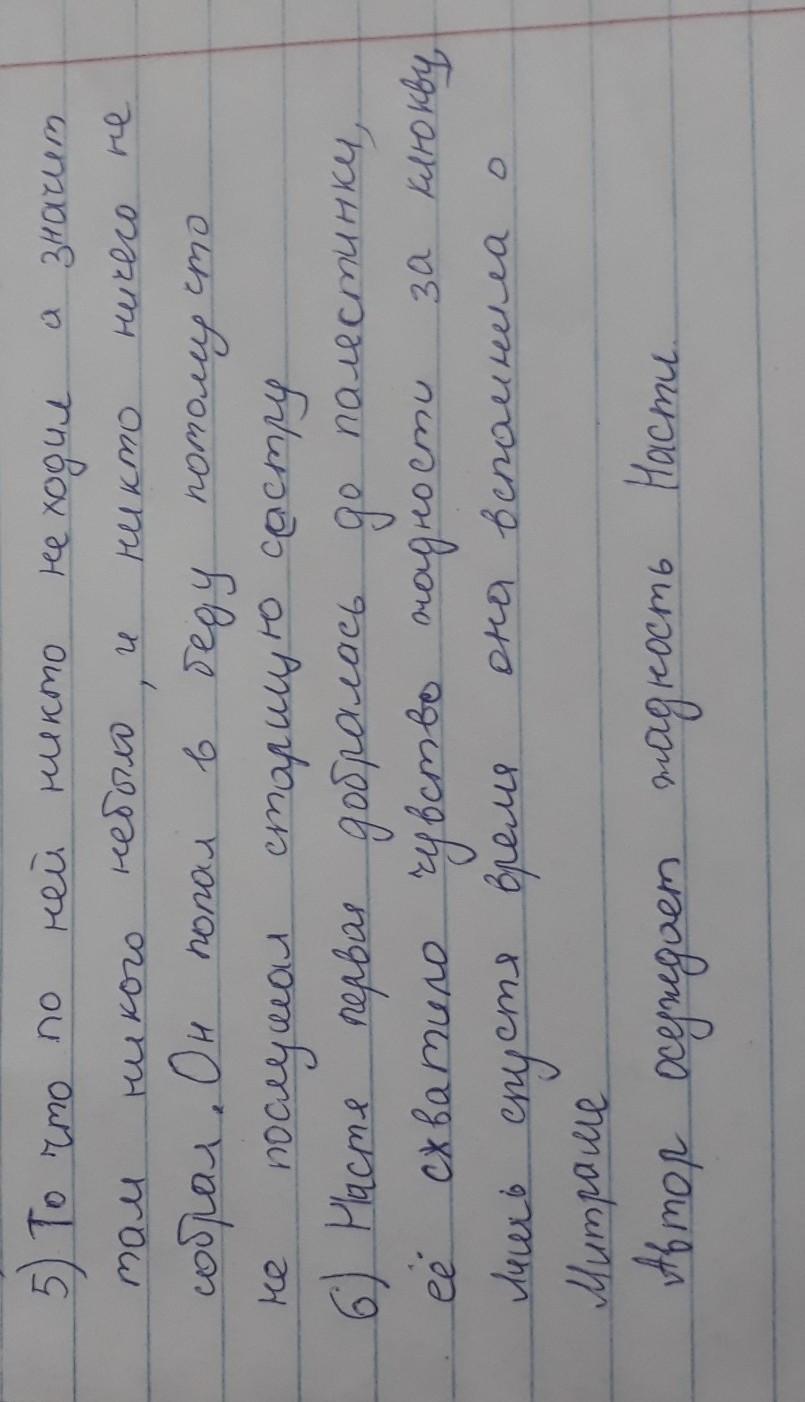 5) То что по ней никто не ходил а значит
там никого небыло, и никто ничего не
собрал. Он попал в беду потомучто
не послушал старшую састру
6) Настя первая добралась до палестинки,
её схватило чувство жадности за клюкву,
лишь спустя время она вспомнила о
Митраше
Автор осеждает жадность Насти.